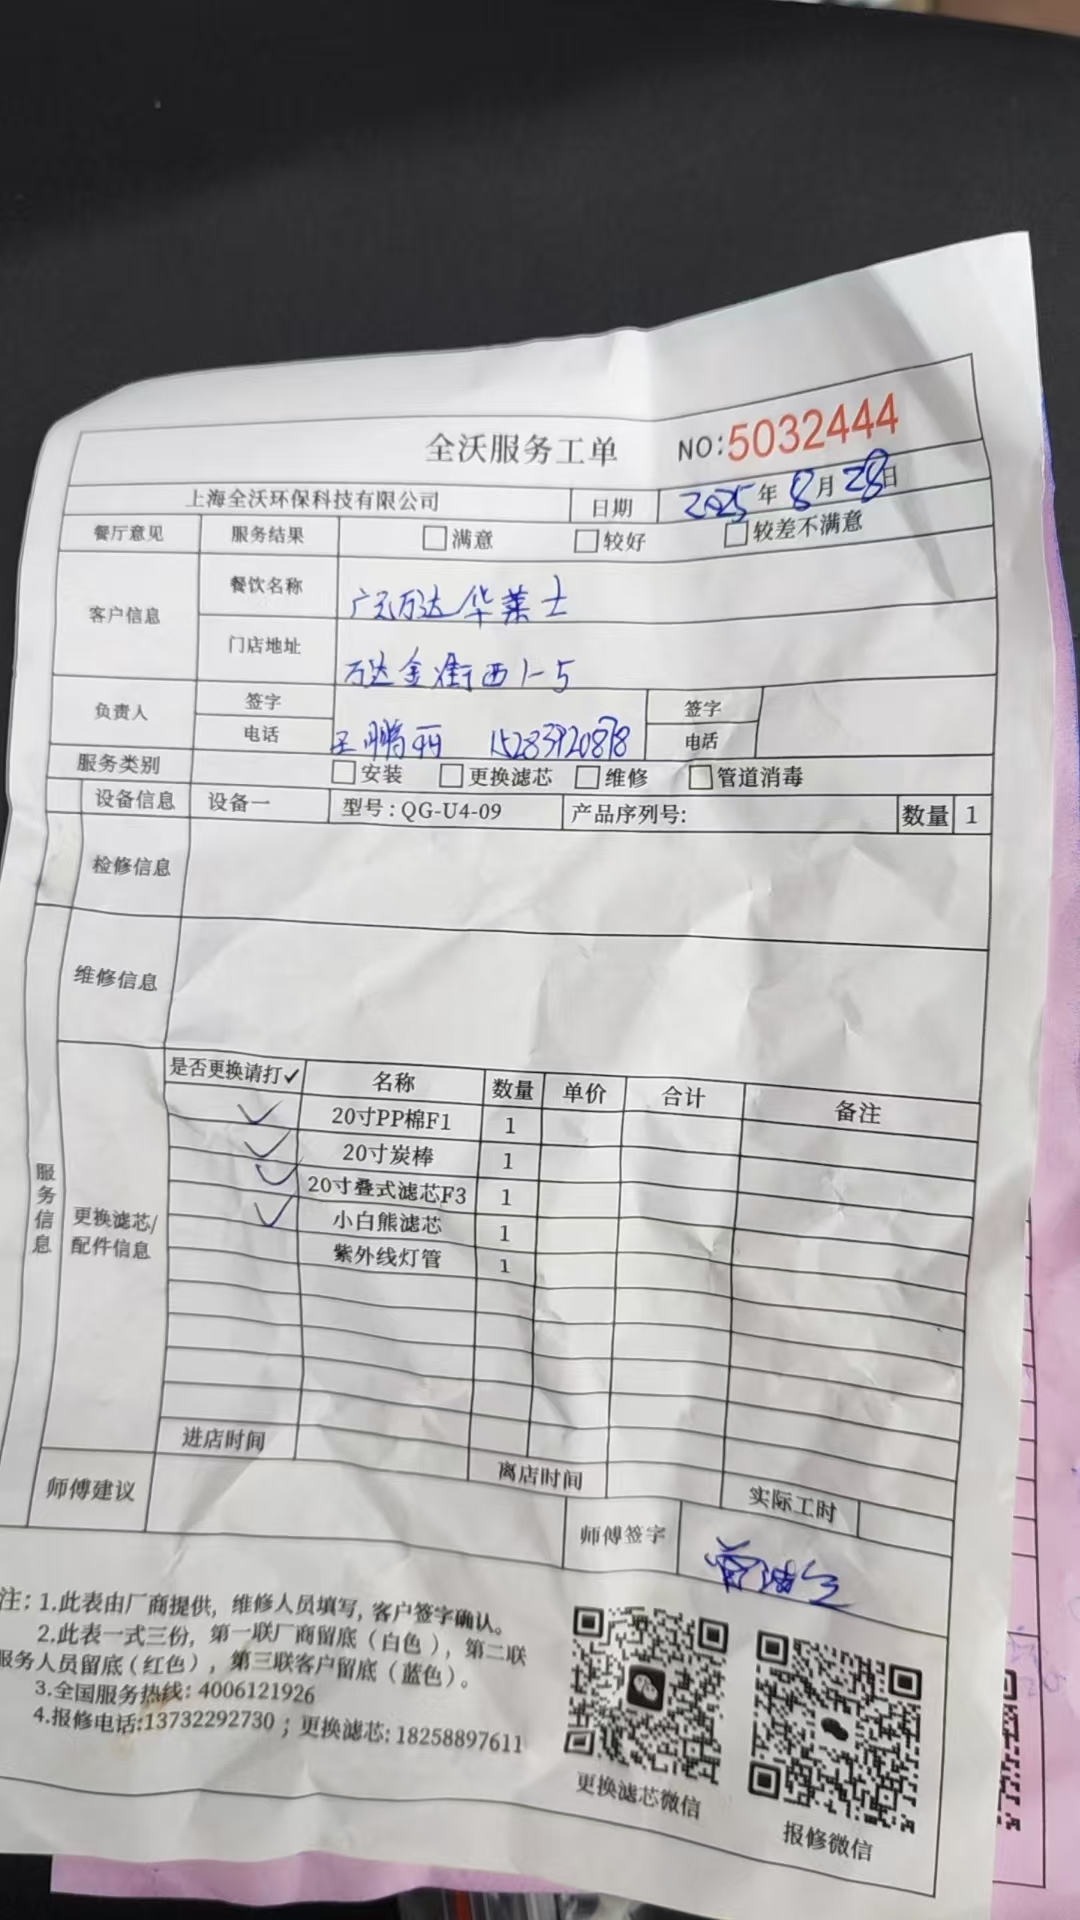 全沃服务工单 NO:5032444
上海全沃环保科技有限公司 日期 2025年8月28日
餐厅意见 服务结果 □满意 □较好 □较差不满意
客户信息 餐饮名称 广元万达华莱士
门店地址 万达金街西1-5
负责人 签字 签字
电话 王鹏 15283920878 电话
服务类别 □安装 □更换滤芯 □维修 □管道消毒
设备信息 设备一 型号:QG-U4-09 产品序列号: 数量 1
检修信息
维修信息
服务信息
更换滤芯/
配件信息
是否更换请打✓ 名称 数量 单价 合计 备注
✓ 20寸PP棉F1 1
✓ 20寸炭棒 1
✓ 20寸叠式滤芯F3 1
✓ 小白熊滤芯 1
紫外线灯管 1
进店时间 离店时间 实际工时
师傅建议 师傅签字
注:1.此表由厂商提供,维修人员填写,客户签字确认。
2.此表一式三份,第一联厂商留底(白色),第二联
服务人员留底(红色),第三联客户留底(蓝色)。
3.全国服务热线:4006121926
4.报修电话:13732292730;更换滤芯:18258897611
更换滤芯微信
报修微信